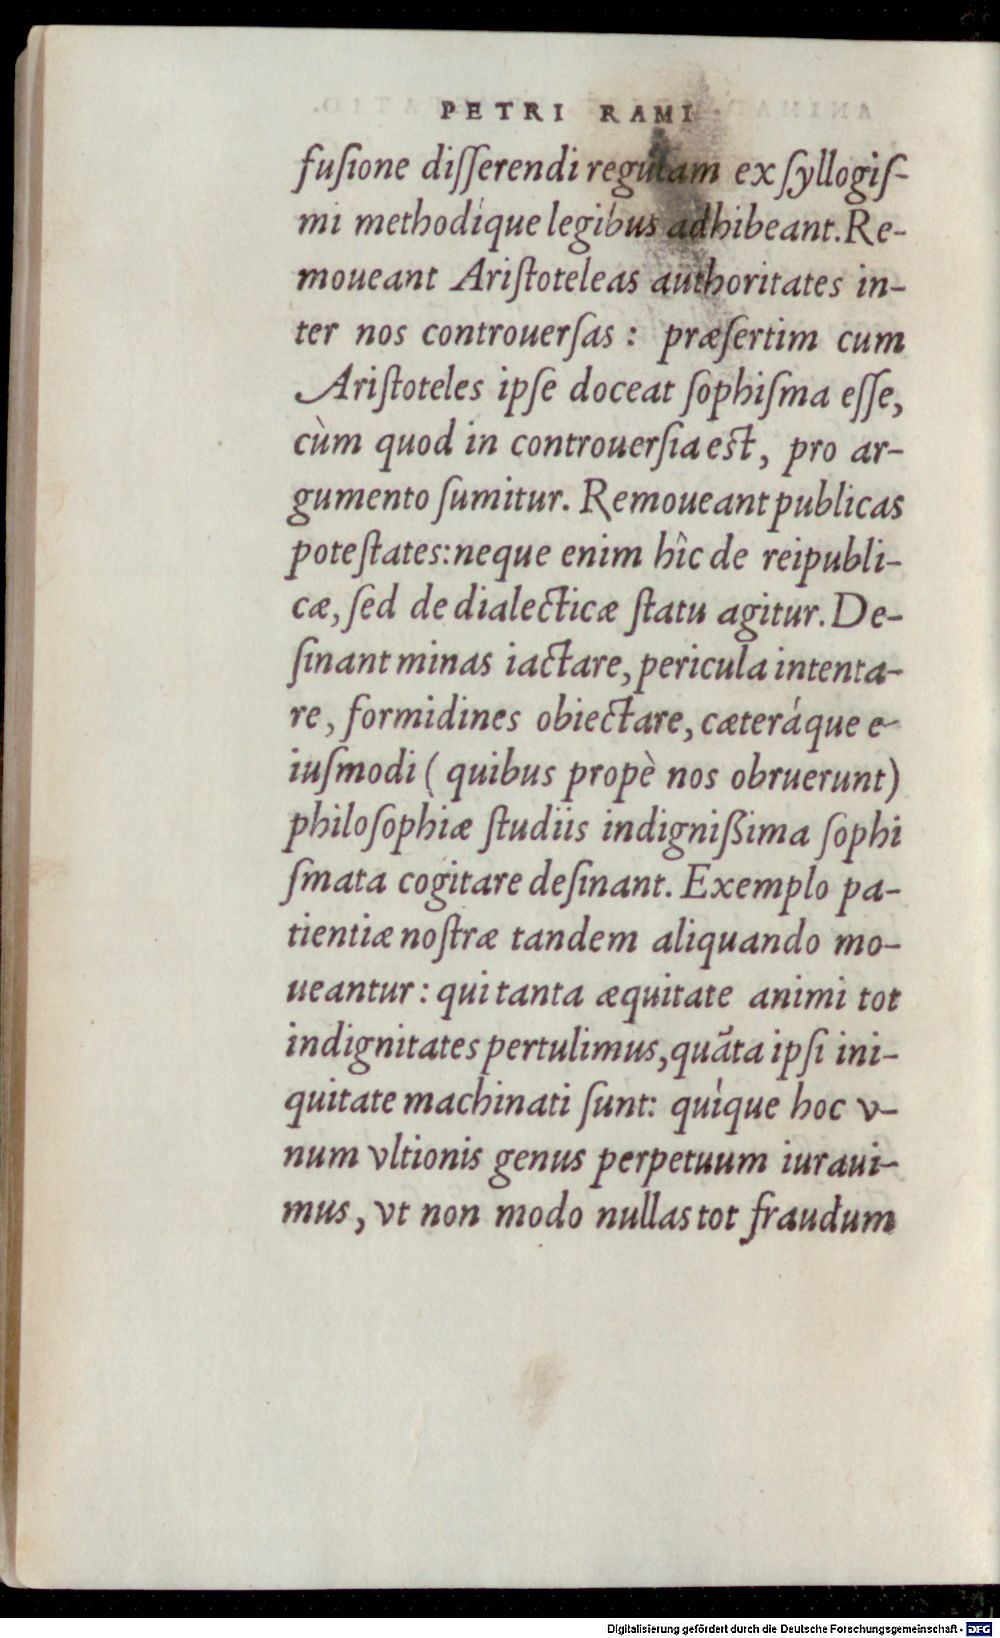 PETRI RAMI
fuſione diſſerendi regulam ex ſyllogiſ-
mi methodíque legibus adhibeant. Re-
moueant Ariſtoteleas authoritates in-
ter nos controuerſas : præſertim cum
Ariſtoteles ipſe doceat ſophiſma eſſe,
cùm quod in controuerſia est, pro ar-
gumento ſumitur. Remoueant publicas
poteſtates: neque enim hîc de reipubli-
cæ, ſed de dialecticæ ſtatu agitur. De-
ſinant minas iactare, pericula intenta-
re, formidines obiectare, cæteráque e-
iuſmodi ( quibus propè nos obruerunt)
philoſophiæ ſtudiis indignißima ſophi
ſmata cogitare deſinant. Exemplo pa-
tientiæ noſtræ tandem aliquando mo-
ueantur : qui tanta æquitate animi tot
indignitates pertulimus, quãta ipſi ini-
quitate machinati ſunt: quìque hoc v-
num vltionis genus perpetuum iuraui-
mus, vt non modo nullas tot fraudum
Digitalisierung gefördert durch die Deutsche Forschungsgemeinschaft - DFG